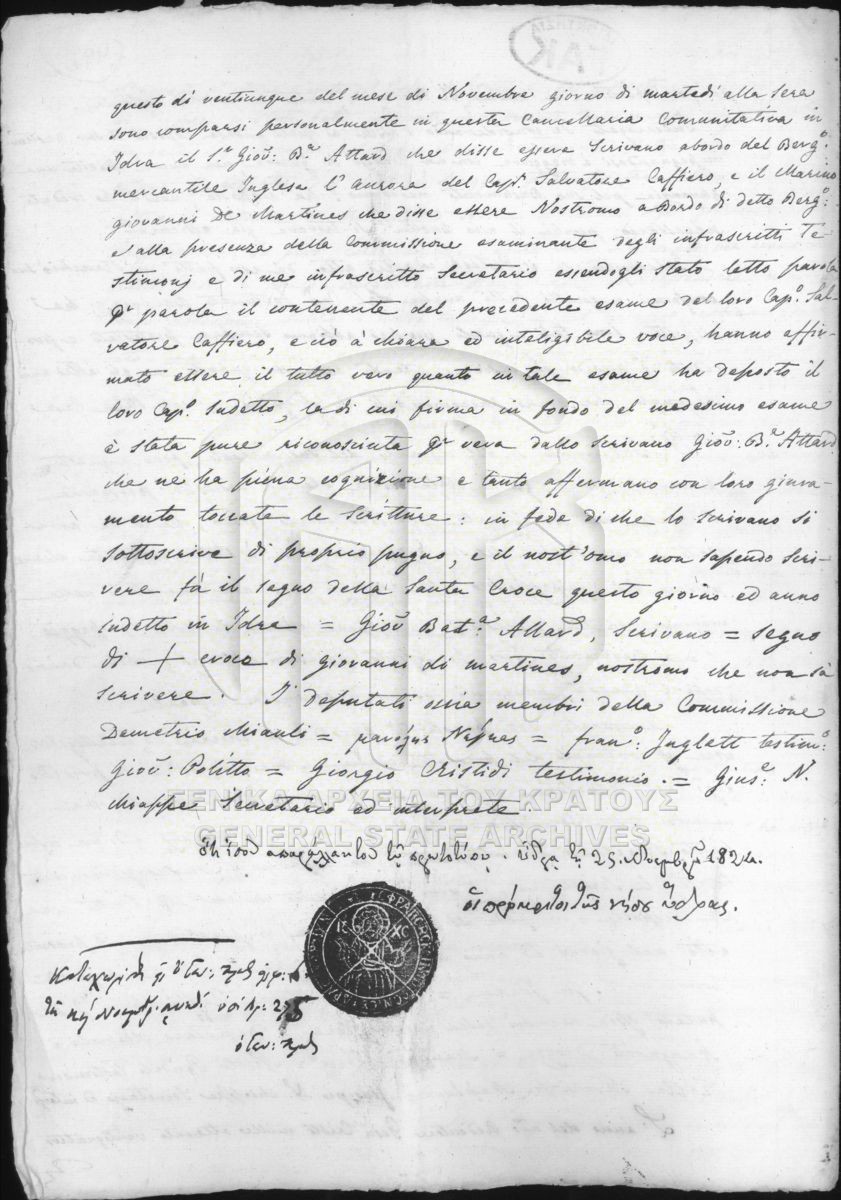 questo dì ventiunque del mese di Novembre giorno di martedì alla sera
sono comparsi personalmente in questa Cancellaria Comunitativa in
Idra il S.r Giov: B.a Attard che disse essere Scrivano abordo del Berg.o
mercantile Inglese l'Aurora del Cap.o Salvatore Caffiero, e il Marino
giovanni De Martines che disse essere Nostromo a Bordo di detto Berg.o:
e alla presenza della Commissione esaminante degli infrascritti Te-
stimonj e di me infrascritto Secretario essendogli stato letto parola
per parola il contenente del precedente esame del loro Cap.o Sal-
vatore Caffiero, e ciò à chiara ed inteligibile voce, hanno affir-
mato essere il tutto vero quanto in tale esame ha deposto il
loro Cap.o sudetto, la di cui firma in fondo del medesimo esame
è stata pure riconosciuta per vera dallo scrivano Giov: B.a Attard
che ne ha piena cognizione e tanto affermano con loro giura-
mento toccate le scritture: in fede di che lo scrivano si
sottoscrive di proprio pugno, e il nost'omo non sapendo scri-
vere fà il segno della Santa Croce questo giorno ed anno
sudetto in Idra = Giov Bat.a Attard, Scrivano = segno
di + croce di giovanni di martines, nostromo che non sà
scrivere. I deputati osia membri della Commissione
Demetrio Miauli = = fran.o: Inglatt testim.o:
Giov: Politto = Giorgio Cristidi testimonio. = Gius.e: N.
Chiappe Secretario ed interprete
ΓΕΝΙΚΑ ΑΡΧΕΙΑ ΤΟΥ ΚΡΑΤΟΥΣ
GENERAL STATE ARCHIVES
ὅτι ἴσον ἀπαράλλακτον τῷ πρωτοτύπῳ. ὕδρα τῇ 25 Νοεμβρίου 1824.
οἱ πρόκριτοι τῆς νήσου ὕδρας.
IC XC